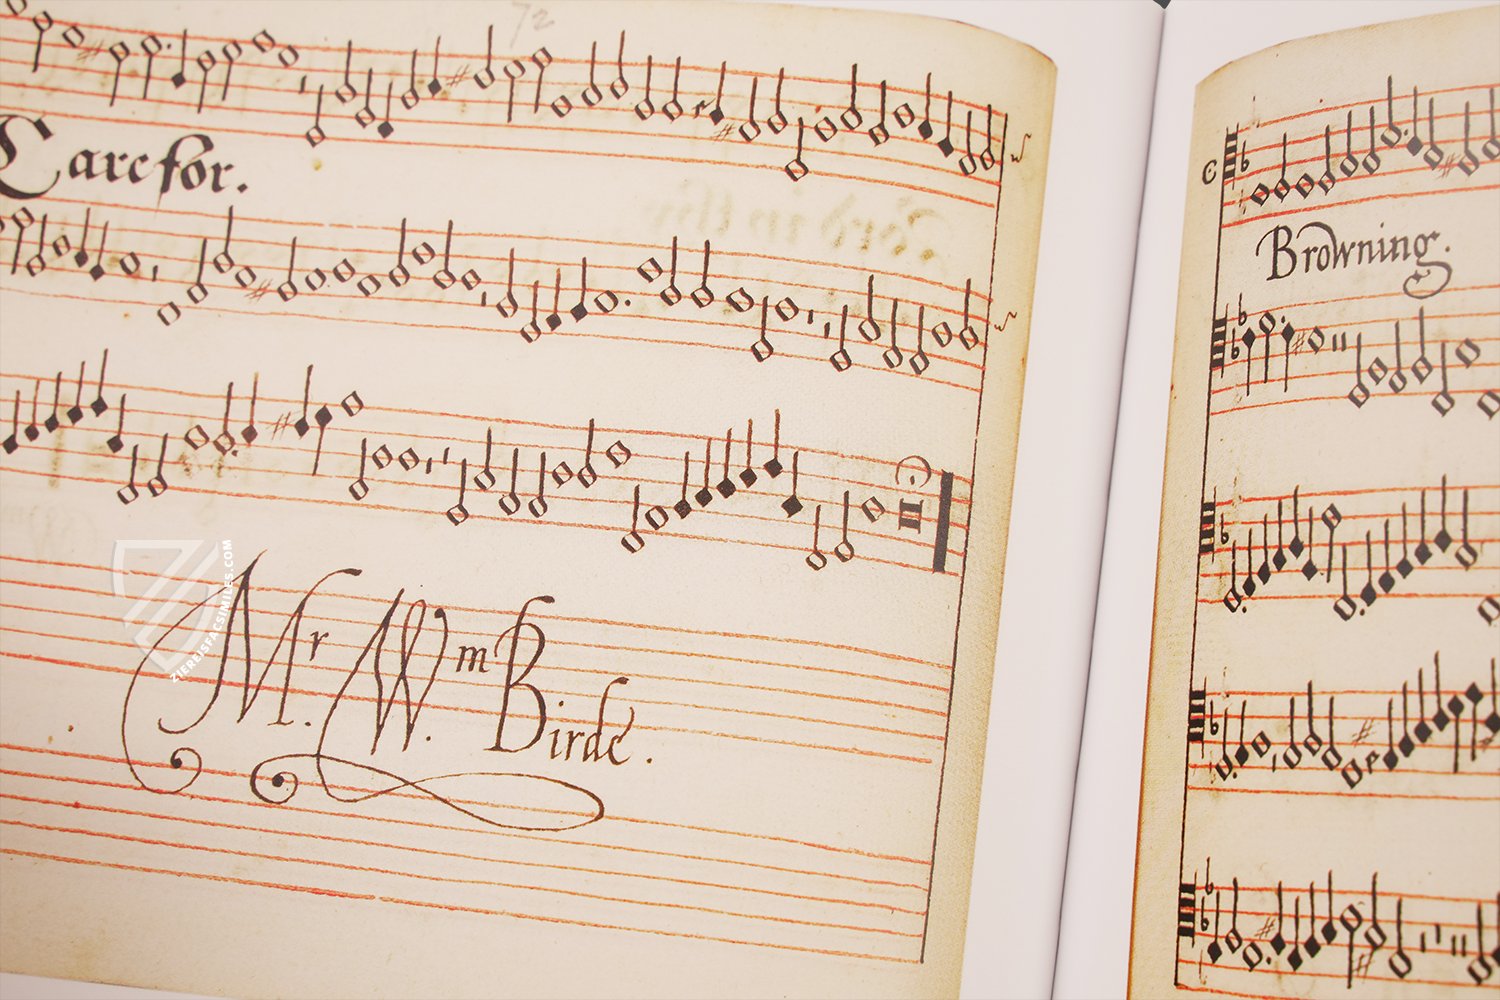 72
Care for.
Mr. Wm Birde.
ZIEREISFACSIMILES.COM
C
Browning.